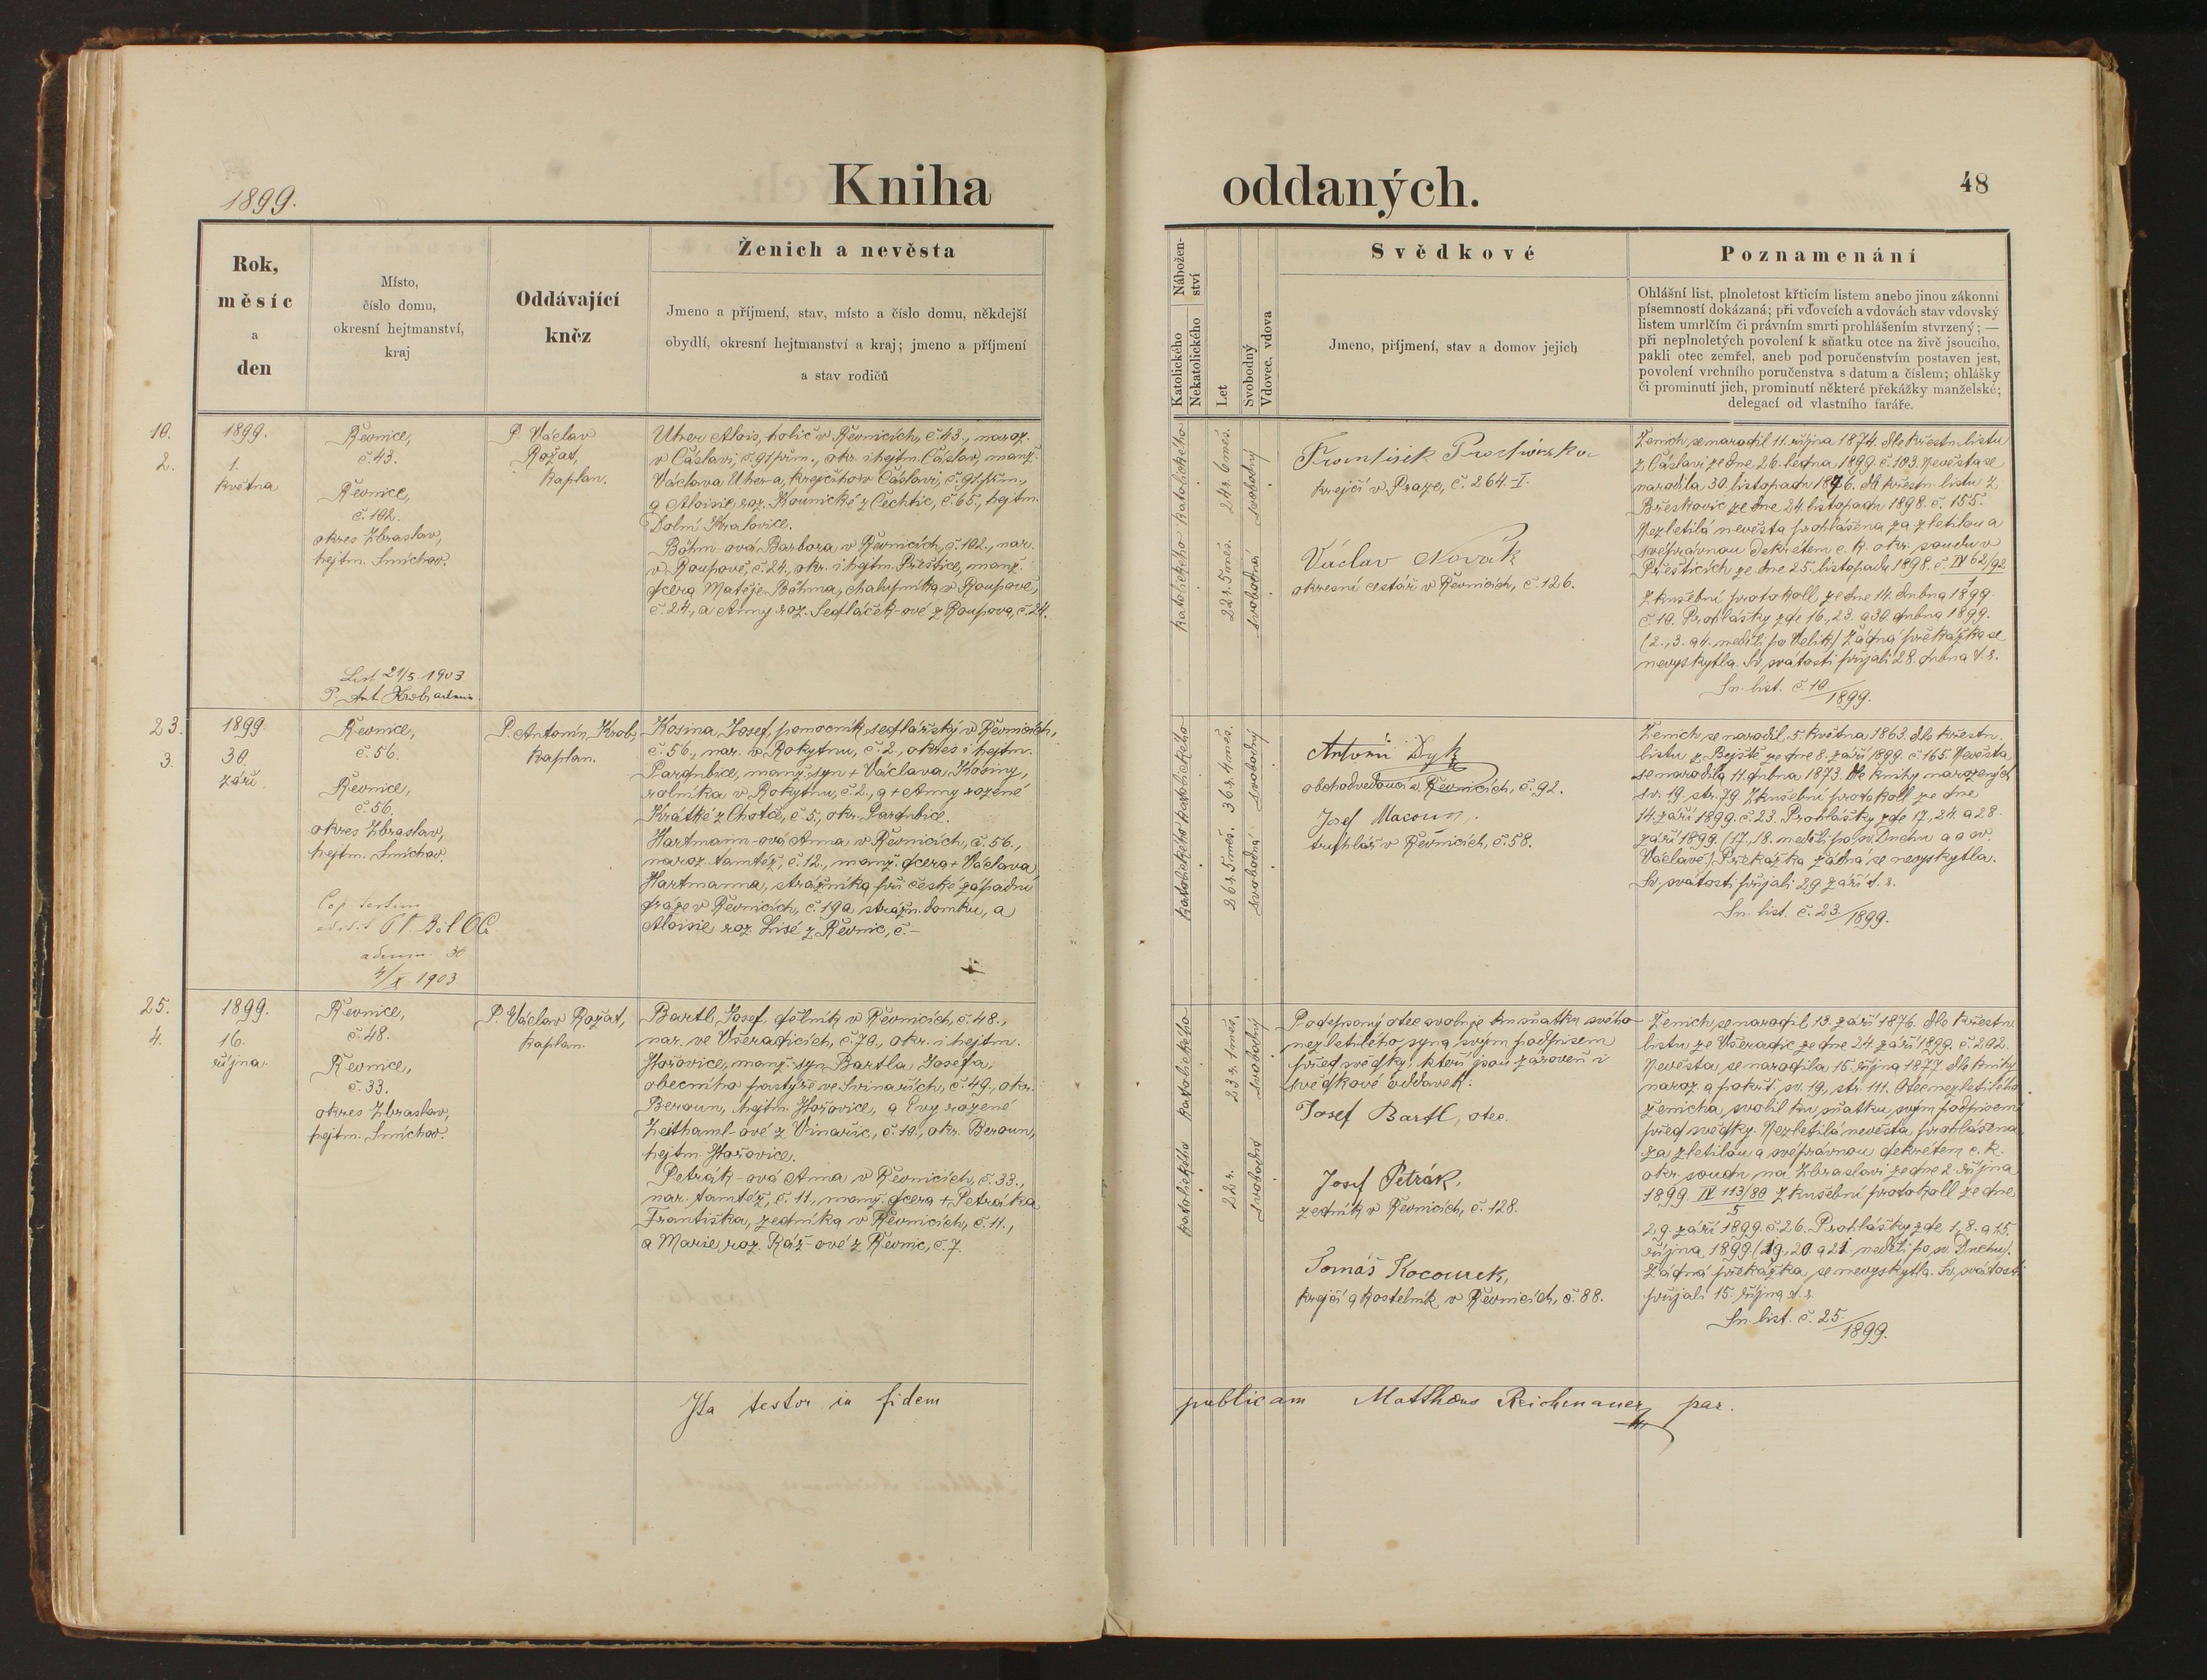 1899.
Kniha
oddaných.
48
Rok,
měsíc
a
den
Místo,
číslo domu,
okresní hejtmanství,
kraj
Oddávající
kněz
Ženich a nevěsta
Jmeno a příjmení, stav, místo a číslo domu, někdejší
obydlí, okresní hejtmanství a kraj; jmeno a příjmení
a stav rodičů
Nábožen-
ství
Katolického
Nekatolického
Let
Svobodný
Vdovec, vdova
Svědkové
Jmeno, příjmení, stav a domov jejich
Poznamenání
Ohlášní list, plnoletost křticím listem anebo jinou zákonní
písemností dokázaná; při vdovcích a vdovách stav vdovský
listem umrlčím či právním smrti prohlášením stvrzený; —
při neplnoletých povolení k sňatku otce na živě jsoucího,
pakli otec zemřel, aneb pod poručenstvím postaven jest,
povolení vrchního poručenstva s datum a číslem; ohlášky
či prominutí jich, prominutí některé překážky manželské;
delegací od vlastního faráře.
10.
2.
1899.
1.
května
Řevnice,
č. 43.
Řevnice,
č. 102.
okres Zbraslav,
hejtm. Smíchov.
List 21/5 1903
P. Ant. Krob admin.
P. Václav
Rožat,
kaplan.
Uher Alois, holič v Řevnicích, č. 43., naroz.
v Čáslavi, č. 91 přm., okr. i hejtm. Čáslav, manž.
Václava Uhera, krejčího v Čáslavi, č. 91. přm.,
a Aloisie, roz. Kounické z Čechtic, č. 65., hejtm.
Dolní Kralovice.
Böhm-ová Barbora v Řevnicích, č. 102., nar.
v Roupově, č. 24., okr. i hejtm. Přeštice, manž.
dcera Matěje Böhma, chalupníka v Roupově,
č. 24., a Anny roz. Sedláček-ové z Roupova, č. 24.
katolického katolického
24 r. 6 měs.
22 r. 5 měs.
svobodný
svobodná
František Procházka
krejčí v Praze, č. 264-I.
Václav Novák
okresní cestář v Řevnicích, č. 126.
Ženich se narodil 11. října 1874. dle křestn. listu
z Čáslavi ze dne 26. ledna 1899. č. 103. Nevěsta se
narodila 30. listopadu 1876. dle křestn. listu z
ze dne 24. listopadu 1898. č. 155.
Nezletilá nevěsta prohlášena za zletilou a
svéprávnou dekrétem c. k. okr. soudu v
Přešticích ze dne 25. listopadu 1898. č. IV 62/92
1
Zkušební protokoll ze dne 14. dubna 1899.
č. 10. Prohlášky zde 16., 23. a 30. dubna 1899.
(2., 3. a 4. neděli po Velik.) Žádná překážka se
nevyskytla. Sv. svátosti přijali 28. dubna t. r.
Sn. list. č. 10/1899.
23.
3.
1899
30.
září
Řevnice,
č. 56.
Řevnice,
č. 56.
okres Zbraslav,
hejtm. Smíchov.
4/X 1903
P. Antonín Krob,
kaplan.
Kosina Josef, pomocník sedlářský v Řevnicích,
č. 56., nar. v Rokytnu, č. 2., okres i hejtm.
Pardubice, manž. syn + Václava Kosiny,
rolníka v Rokytnu, č. 2., a + Anny rozené
Krátké z Chotče, č. 5., okr. Pardubice.
Hartmann-ová Anna v Řevnicích, č. 56.,
naroz. tamtéž, č. 12., manž. dcera + Václava
Hartmanna, strážníka při české západní
dráze v Řevnicích, č. 19a strážn. domku, a
Aloisie roz. Lisé z Řevnic, č. –
katolického katolického
36 r. 4 měs.
26 r. 5 měs.
svobodný
svobodná
Antonín Dyk
obchodvedoucí v Řevnicích, č. 92.
Josef Macoun.
truhlář v Řevnicích, č. 58.
Ženich se narodil 5. května 1863. dle křestn.
listu z Bejště ze dne 8. září 1899. č. 165. Nevěsta
se narodila 11. dubna 1873. dle knihy narozených
sv. 19., str. 79. Zkušební protokoll ze dne
14. září 1899. č. 23. Prohlášky zde 17., 24. a 28.
září 1899. (17., 18. neděli po sv. Duchu a o sv.
Václavě). Překážka žádná se nevyskytla.
Sv. svátosti přijali 29. září t. r.
Sn. list. č. 23/1899.
25.
4.
1899.
16.
října
Řevnice,
č. 48.
Řevnice,
č. 33.
okres Zbraslav,
hejtm. Smíchov.
P. Václav Rožat,
kaplan.
Bartl Josef, dělník v Řevnicích, č. 48.,
nar. ve Všeradicích, č. 70., okr. i hejtm.
Hořovice, manž. syn Bartla Josefa,
obecního pastýře ve Svinařích, č. 49., okr.
Beroun, hejtm. Hořovice, a Evy rozené
Zeithaml-ové z Vinařic, č. 10., okr. Beroun,
hejtm. Hořovice.
Petrák-ová Anna v Řevnicích, č. 33.,
nar. tamtéž, č. 11., manž. dcera + Petráka
Františka, zedníka v Řevnicích, č. 11.,
a Marie, roz. Ráž-ové z Řevnic, č. 7.
katolického katolického
23 r. 1 měs.
22 r.
svobodný
svobodná
Podepsaný otec svoluje ku sňatku svého
nezletilého syna svým podpisem
před svědky, kteří jsou zároveň i
svědkové oddavek:
Josef Bartl, otec.
Josef Petrák,
zedník v Řevnicích, č. 128.
Tomáš Kocourek,
krejčí a kostelník v Řevnicích, č. 88.
Ženich se narodil 13. září 1876. dle křestn.
listu ze Všeradic ze dne 24. září 1899. č. 292.
Nevěsta se narodila 15. října 1877. dle knihy
naroz. a pokřt. sv. 19., str. 111. Otec nezletilého
ženicha svolil ku sňatku svým podpisem
před svědky. Nezletilá nevěsta prohlášena
za zletilou a svéprávnou dekrétem c. k.
okr. soudu na Zbraslavi ze dne 2. října
1899. IV 113/80 Zkušební protokoll ze dne
5
29. září 1899. č. 26. Prohlášky zde 1., 8. a 15.
října 1899 (19., 20. a 21. neděli po sv. Duchu).
Žádná překážka se nevyskytla. Sv. svátosti
přijali 15. října t. r.
Sn. list. č. 25/1899.
Ita testor in fidem
publicam Matthæus Reichenauer par.